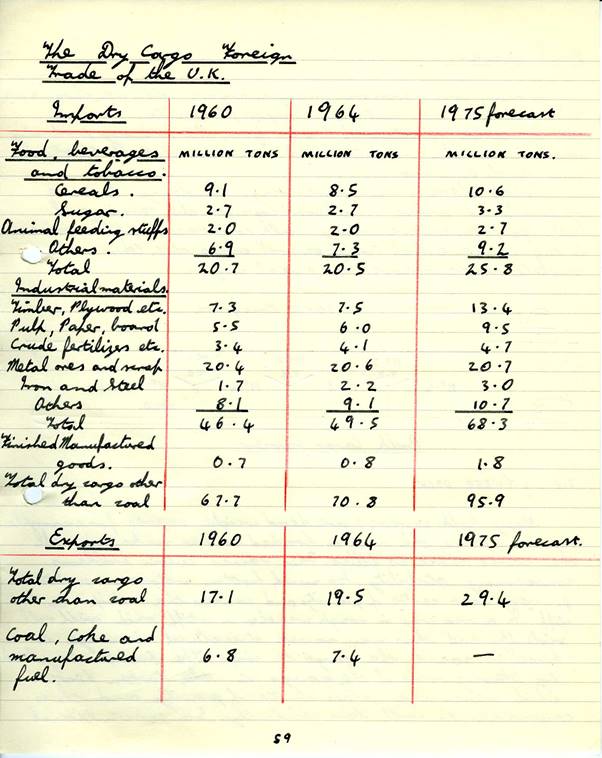 The Dry Cargo Foreign
Trade of the U.K.
Imports 1960 1964 1975 forecast
Food, beverages MILLION TONS MILLION TONS MILLION TONS.
and tobacco.
Cereals. 9.1 8.5 10.6
Sugar. 2.7 2.7 3.3
Animal feeding stuffs 2.0 2.0 2.7
Others. 6.9 7.3 9.2
Total 20.7 20.5 25.8
Industrial materials.
Timber, Plywood etc. 7.3 7.5 13.4
Pulp, Paper, board 5.5 6.0 9.5
Crude fertilizers etc. 3.4 4.1 4.7
Metal ores and scrap 20.4 20.6 20.7
Iron and Steel 1.7 2.2 3.0
Others 8.1 9.1 10.7
Total 46.4 49.5 68.3
Finished Manufactured
goods. 0.7 0.8 1.8
Total dry cargo other
than coal 67.7 70.8 95.9
Exports 1960 1964 1975 forecast.
Total dry cargo
other than coal 17.1 19.5 29.4
Coal, Coke and
manufactured 6.8 7.4 —
fuel.
59